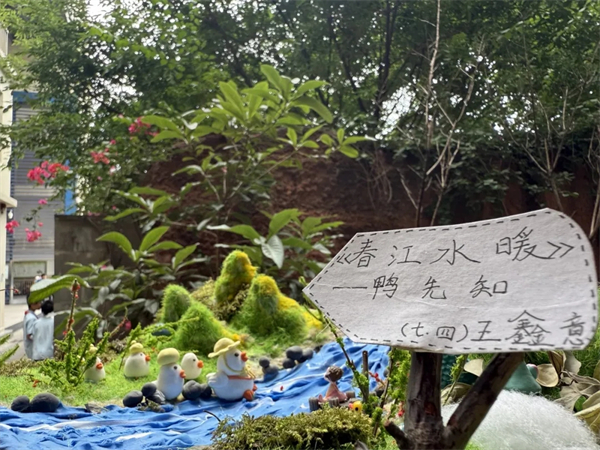 《春江水暖》
——鸭先知
(七.四)王鑫意